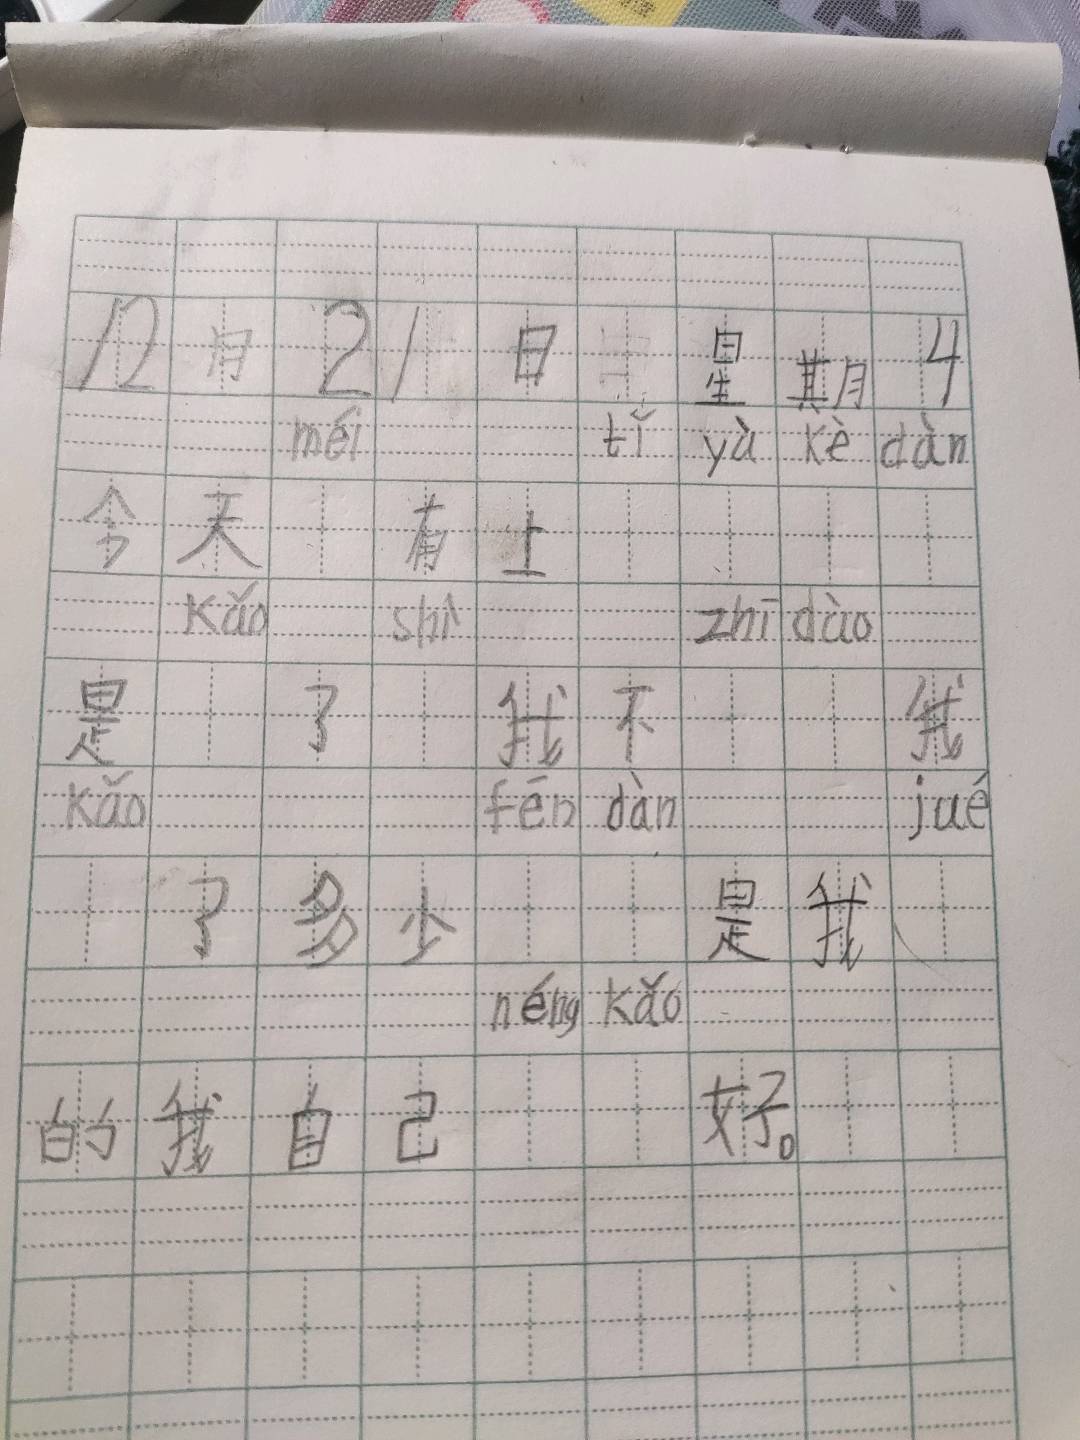 12月21日 星期4
méi tǐ yà kè dàn
今天 有上
kǎo shì zhī dào
是 了 我不 我
kǎo fēn dàn jué
了多少 是我
néng kǎo
的我自己 好。